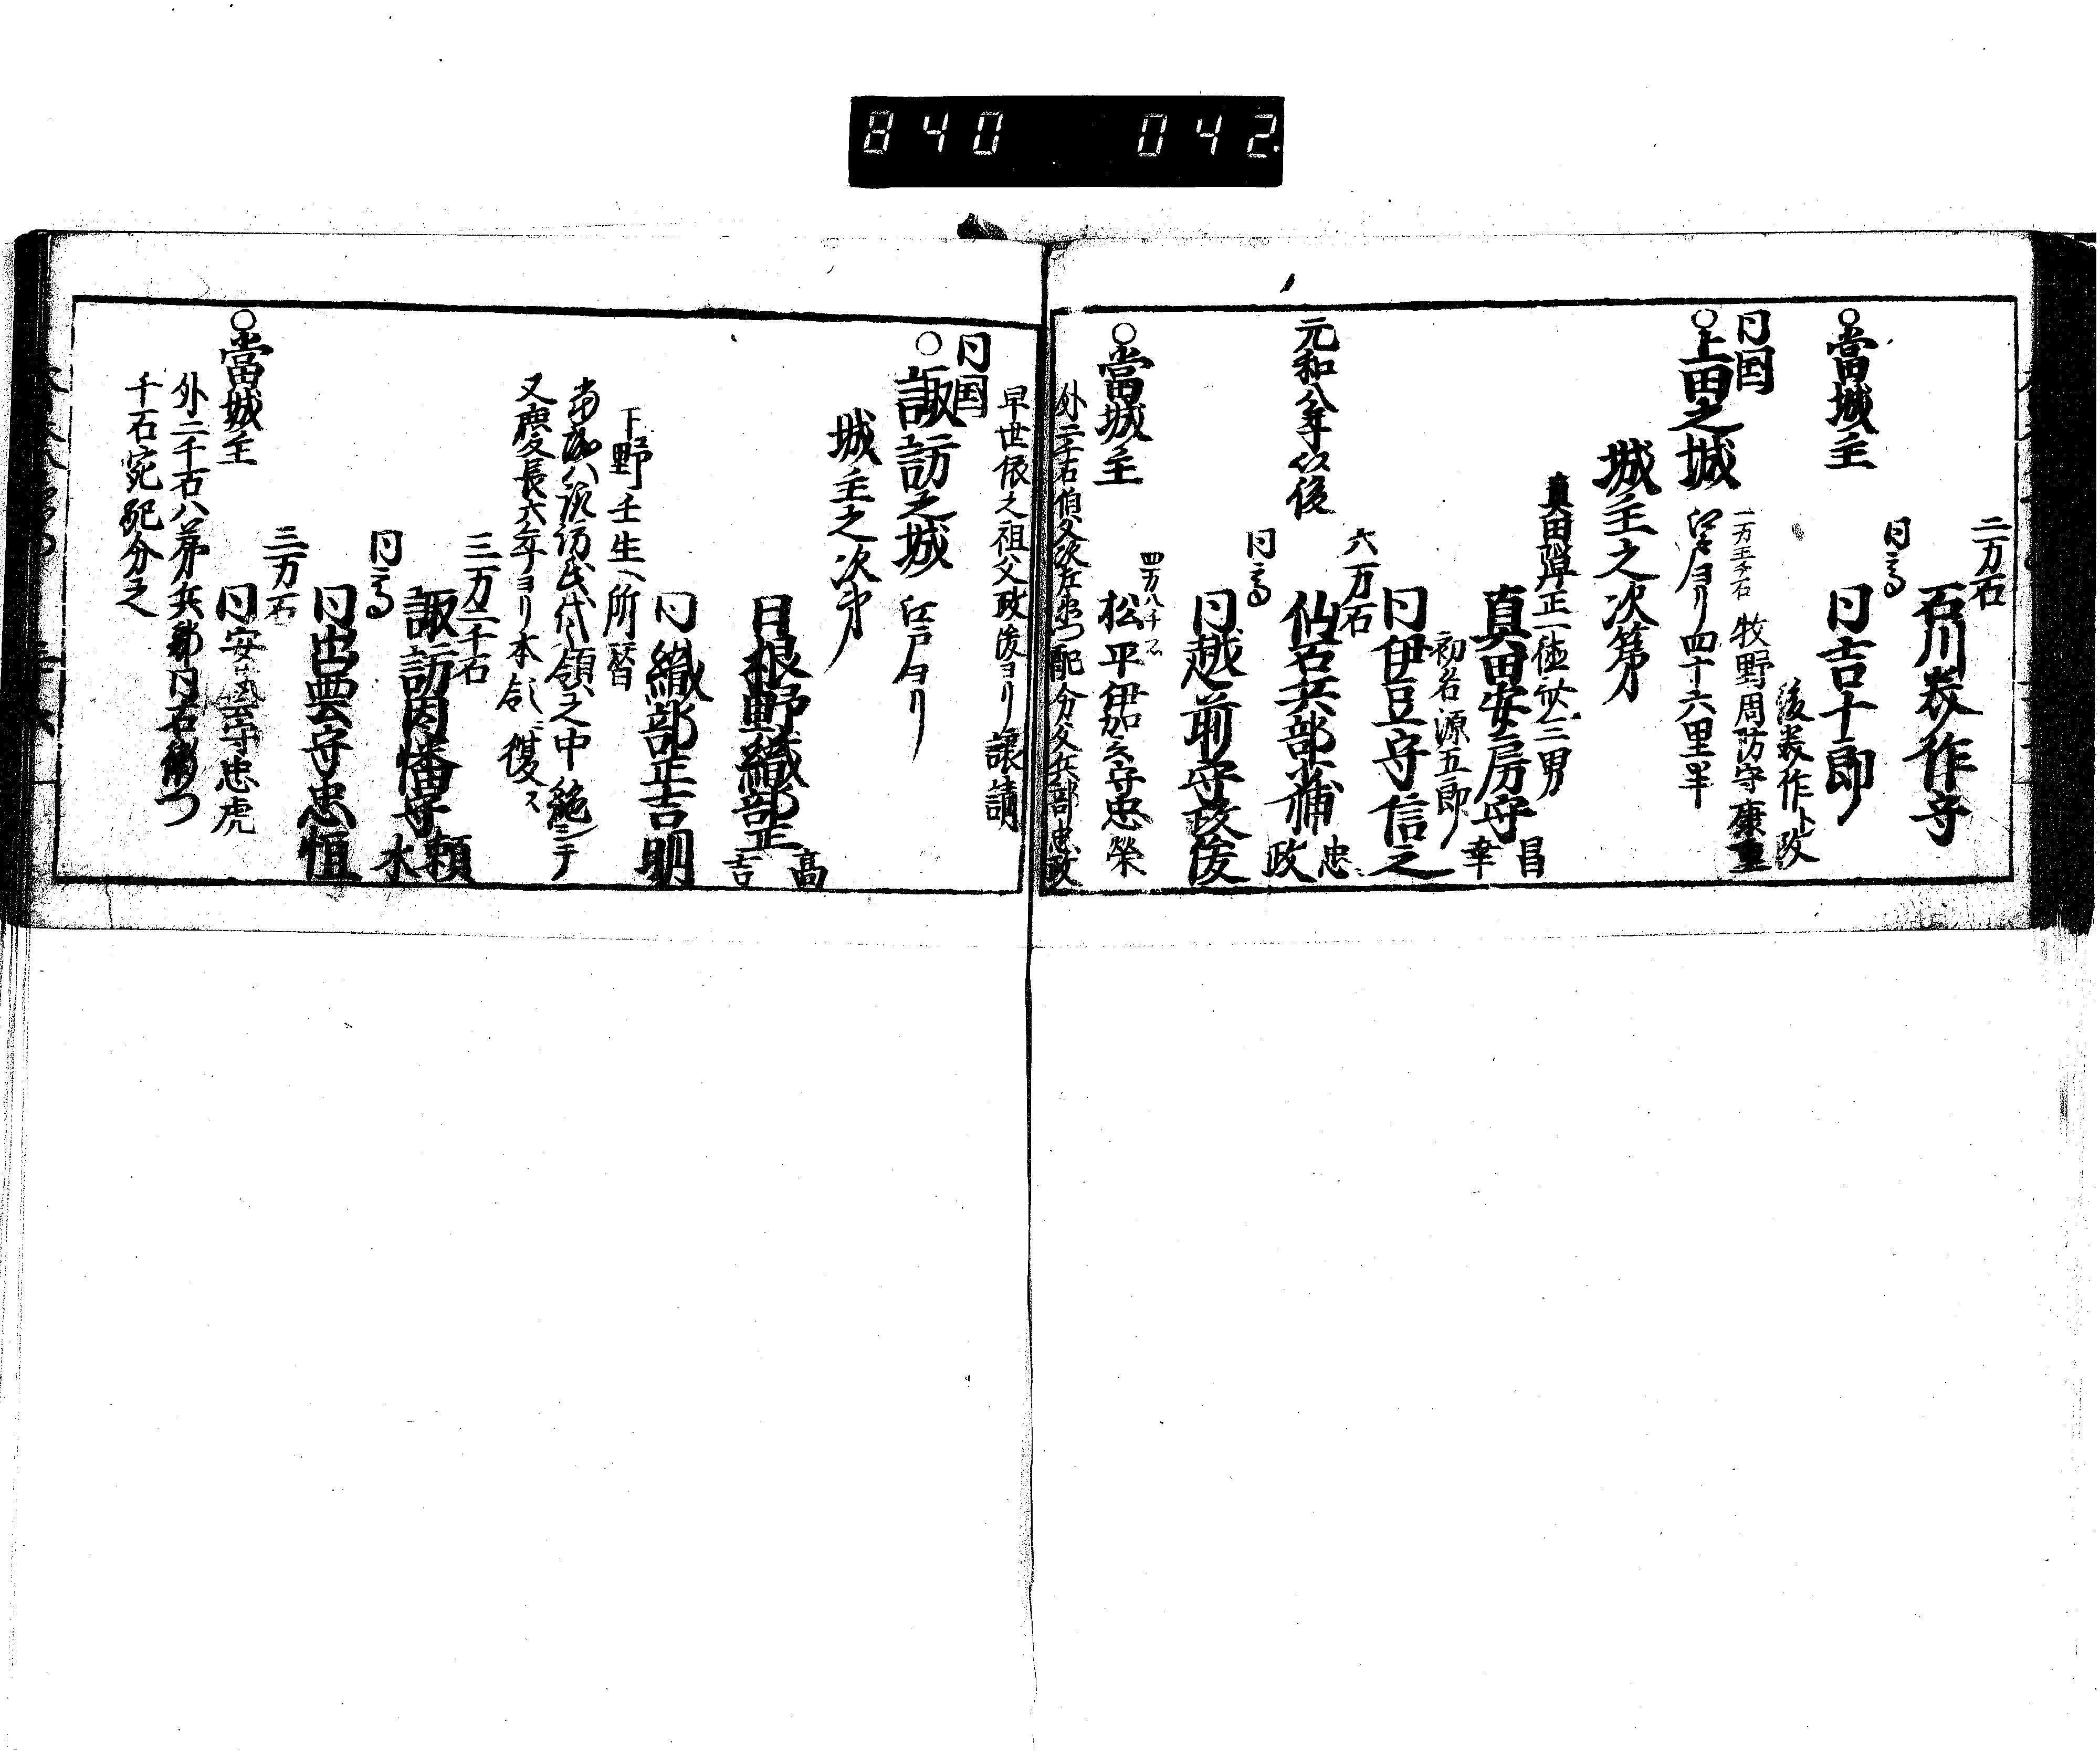 840 042
二万石
石川美作守
同高
同吉十郎
後美作ト改
○當城主
一万五千石 牧野周防守康重
同国
○上田之城 江戸ヨリ四十六里半
城主之次第
真田弾正一徳斎三男
真田安房守昌幸
初名源五郎
同伊豆守信之
六万石
仙石兵部大輔忠政
元和八年以後
同高
同越前守政俊
四万八千石
松平伊賀守忠榮
○當城主
外二千石伯父次左衛門配分父兵部忠政
早世依之祖父政俊ヨリ譲請
同国
○諏訪之城 江戸ヨリ
城主之次第
日根野織部正高吉
同織部正吉明
下野壬生へ所替
当城ハ諏訪氏代々領之中絶シテ
又慶長六年ヨリ本領ニ復ス
三万二千石
諏訪因幡守頼水
同高
同出雲守忠恒
三万石
同安芸守忠虎
○當城主
外二千石八弟兵
千石宛配分之